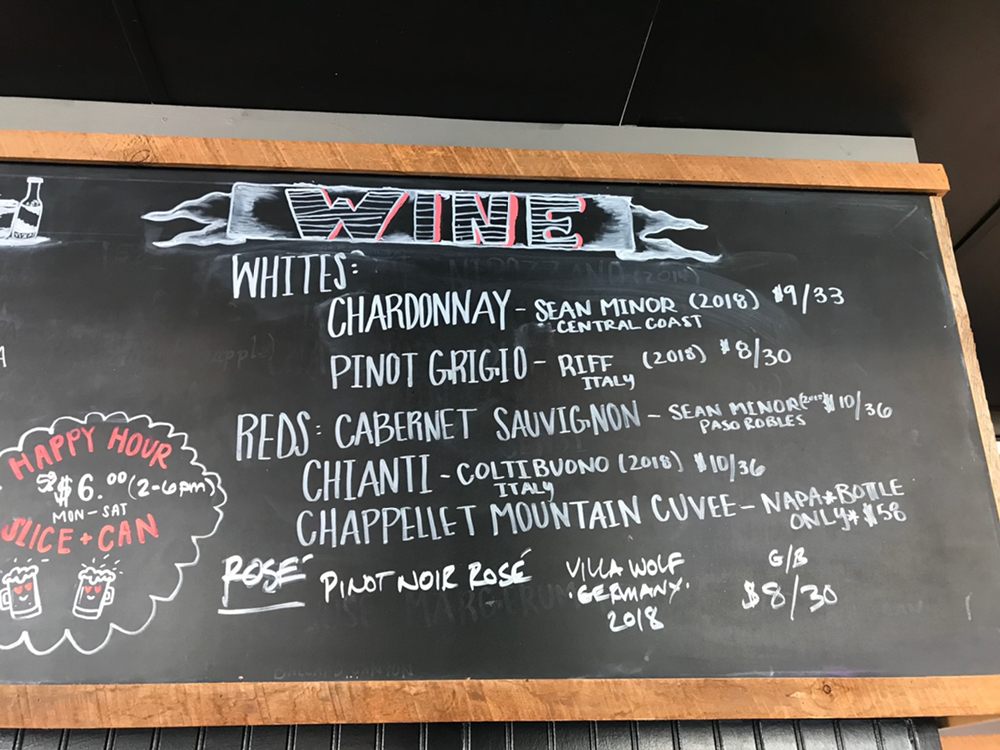 WINE
WHITES:
CHARDONNAY - SEAN MINOR (2018) $9/33
CENTRAL COAST
PINOT GRIGIO - RIFF (2018) $8/30
ITALY
REDS: CABERNET SAUVIGNON - SEAN MINOR $10/36
PASO ROBLES
CHIANTI - COLTIBUONO (2018) $10/36
ITALY
CHAPPELLET MOUNTAIN CUVEE - NAPA *BOTTLE
ONLY* $58
ROSÉ PINOT NOIR ROSÉ VILLA WOLF G/B
·GERMANY· $8/30
2018
HAPPY HOUR
$6.00 (2-6pm)
MON-SAT
SLICE + CAN